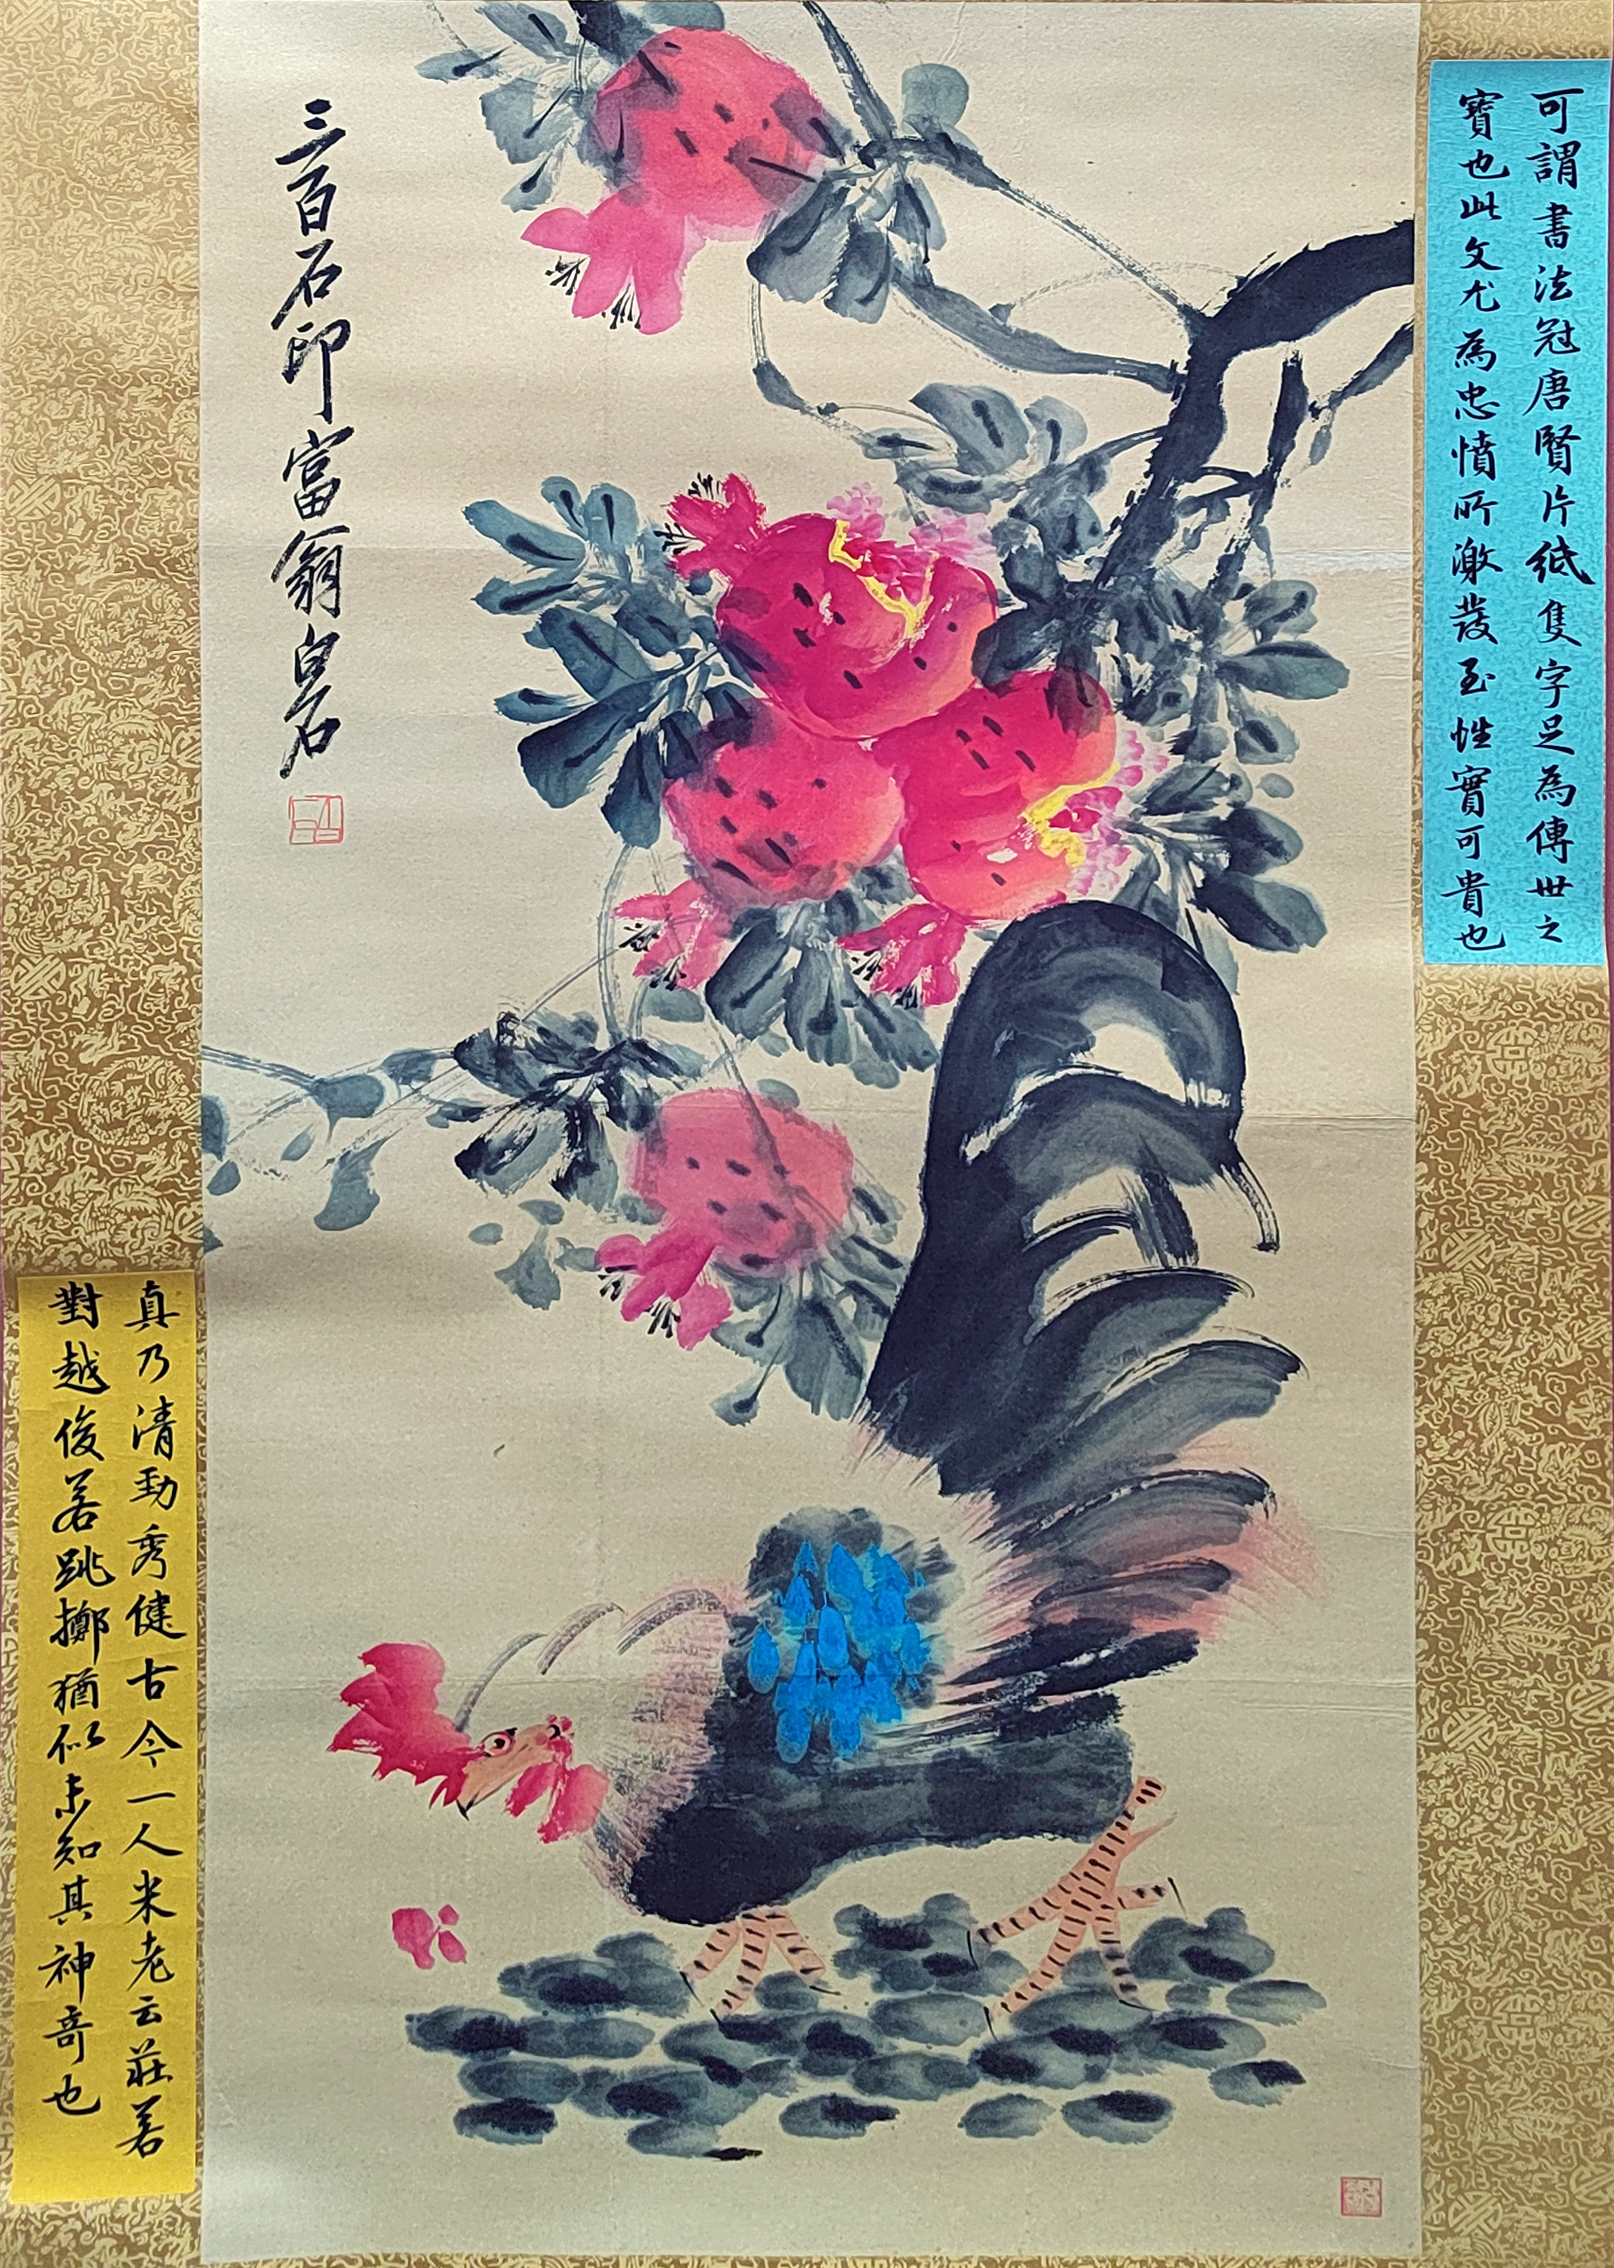 可謂書法冠唐賢片紙隻字足為傳世之
寶也此文尤為忠憤所激發至性實可貴也
三百石印富翁白石
真乃清勁秀健古今一人米老云莊若
對越俊若跳擲猶似未知其神奇也